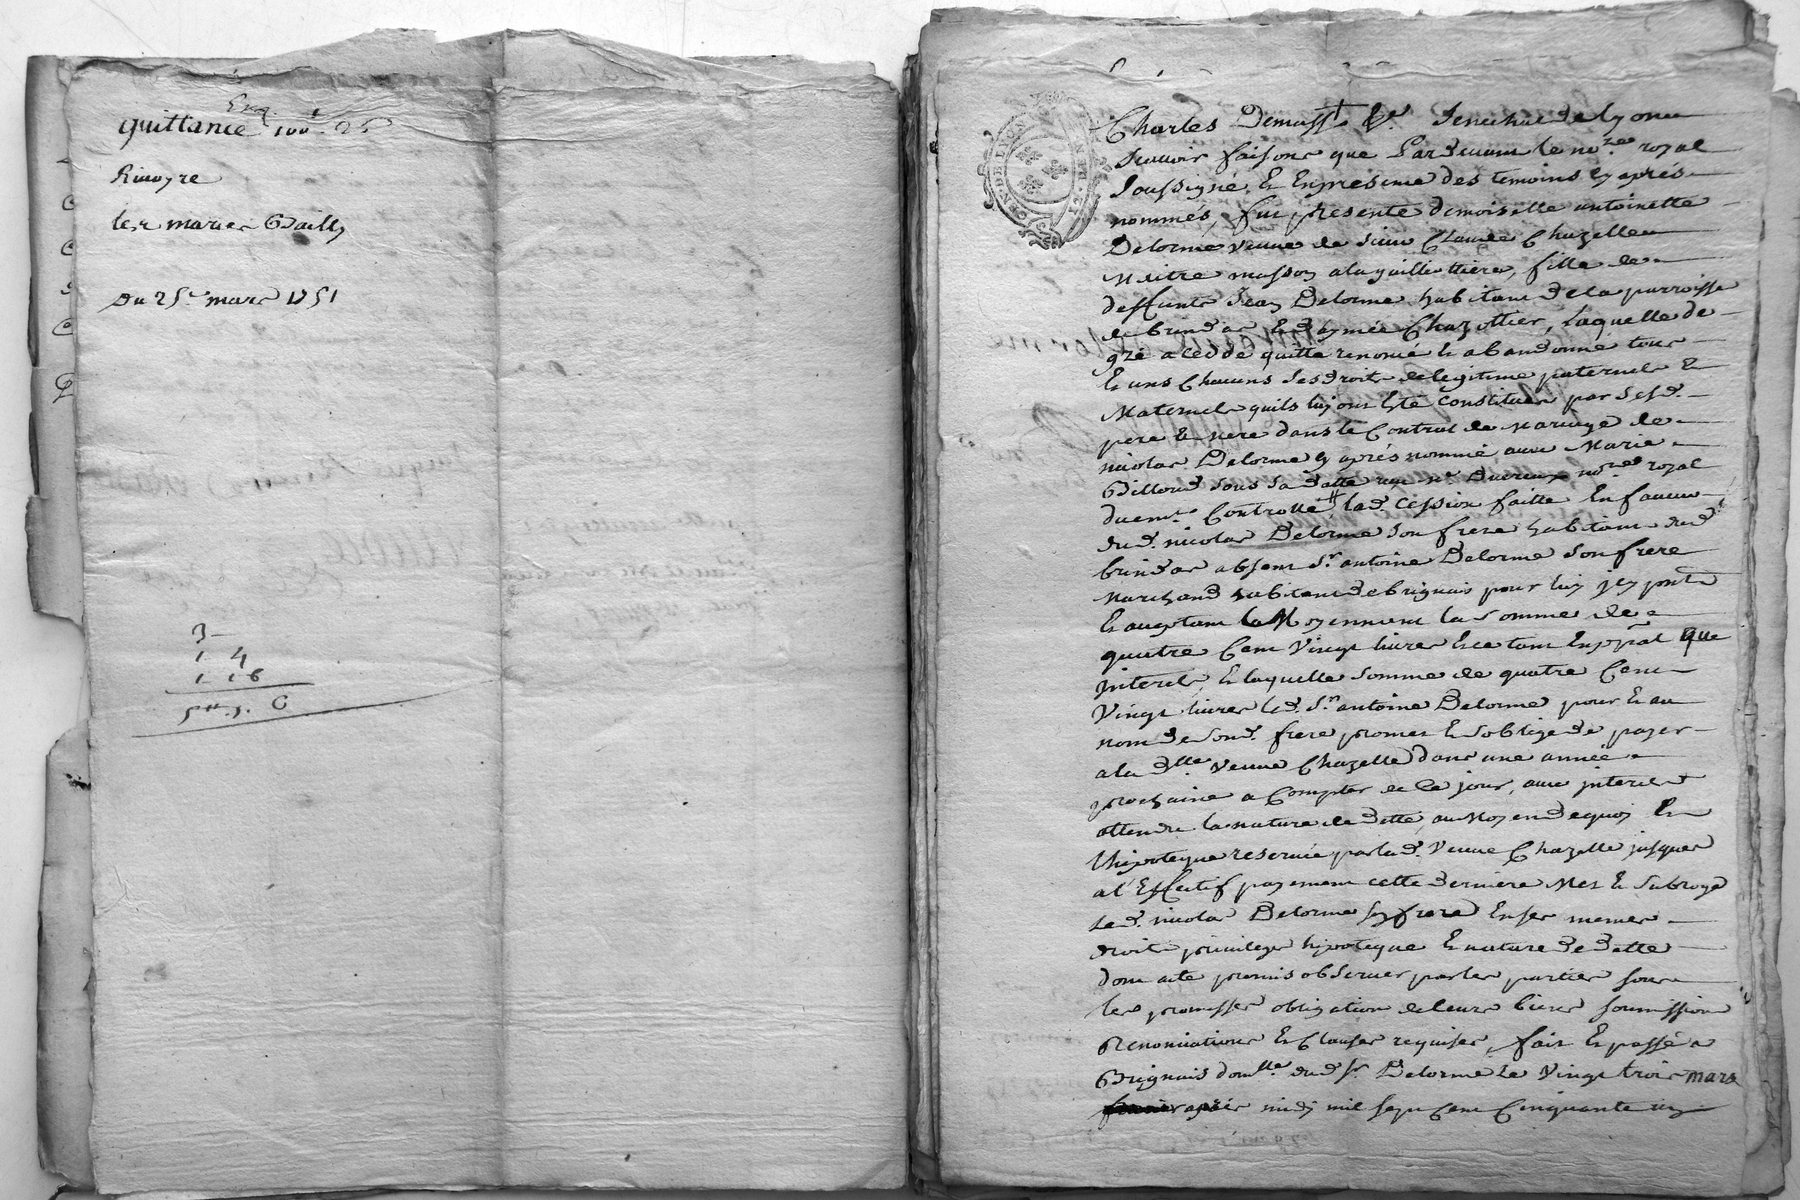 Exq.
quittance 100
Rivoyre
les maries Bailly
Du 25e mars 1751
3
1 4
1 16
5tt. 5. 6
GEN. DE LYON
Charles Demasso &a Senechal de Lyon
Scavoir faisons que Pardevant le nore royal
Soussigné, et Enpresence des temoins cy aprés
nommés, fut presente demoiselle antoinette
Delorme veuve de Sieur Claude Chazelle
Maitre masson a la guillottiere, fille de
deffunts Jean Delorme habitant de la parroisse
de brindas Et d'aymée Chazottier, Laquelle de
gré a cedde quitte renoncé Et abandonne tous
Et uns Chacuns ses droits de legitime paternels Et
Maternels quils luy ont Eté constitués par sesd.
pere Et mere dans le Contrat de Mariage de
nicolas Delorme cy aprés nommé avec Marie
Billoud sous sa datte reçu Me nore royal
duemt. Controllé lad. Cession faitte En faveur
dud. nicolas Delorme Son frere habitant dud.
brindas absent Sr. antoine Delorme Son frere
Marchand habitant de brignais pour luy jcy pnt
Et acceptant Moyennant la Somme de
quatre Cent Vingt livres Et ce tant En ppal que
jnterets, Et laquelle Somme de quatre Cent
Vingt livres led. Sr. antoine Delorme pour Et au
nom de Sond. frere promet Et Soblige de payer
a lad. dlle veuve Chazelle dans une année
prochaine a Compter de Ce jour, avec jnterets
attendu la nature de dette, au Moyen de quoy Et
Lhipoteque reservée par lad. Veuve Chazelle jusques
al'Effectif payement cette derniere Met Et Subroge
Led. nicolas Delorme son frere En ses memes
droits privileges hipoteque Et nature de dette
dont acte promis observer par les parties sous
les promesses obligation de leurs biens soumissions
Renonciations Et Clauses requises, fait Et passé a
Brignais domlle dud. Sr. Delorme Le Vingt trois mars
apres midi mil sept cent Cinquante un